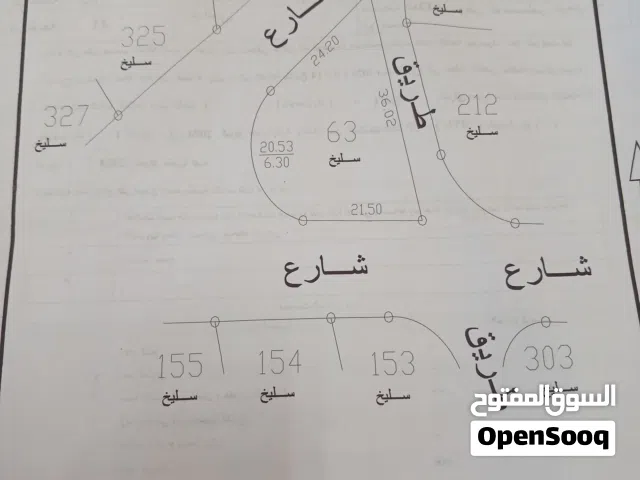 سليخ
325
سليخ
شارع
24.20
طريق
36.02
327
سليخ
212
سليخ
63
سليخ
20.53
6.30
21.50
شارع
شارع
155
سليخ
154
سليخ
153
سليخ
طريق
303
سليخ
السوق المفتوح
OpenSooq